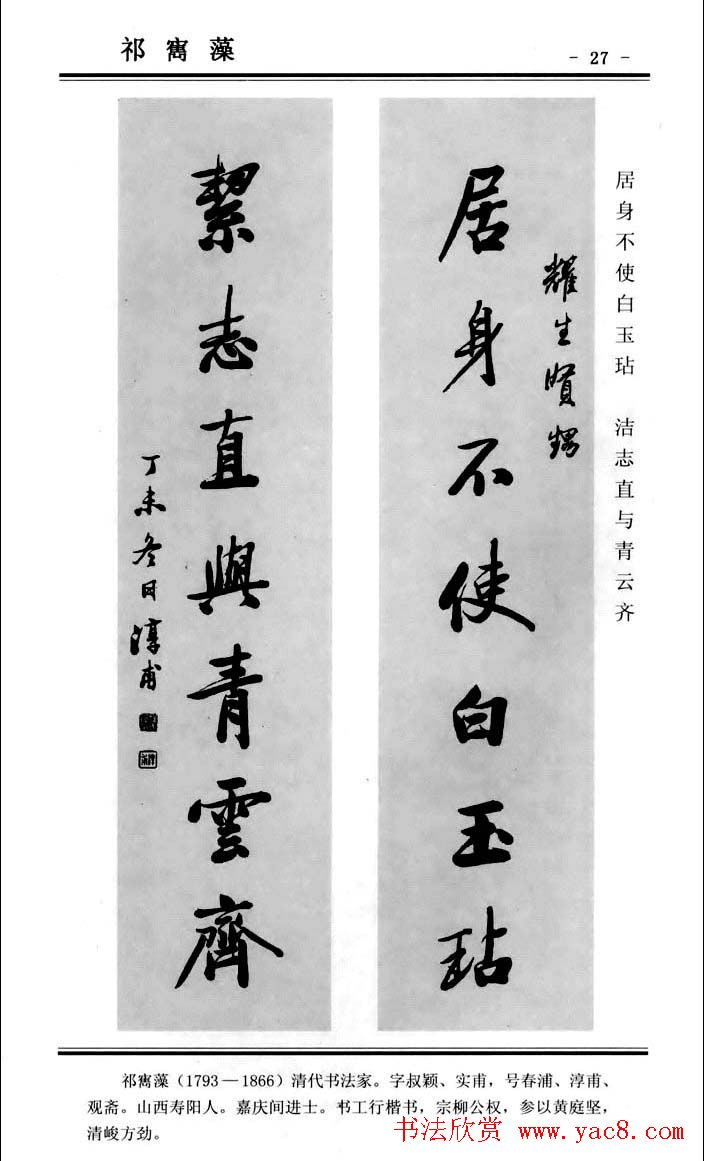 祁寯藻
- 27 -
居身不使白玉玷　洁志直与青云齐
耀生贤甥
居身不使白玉玷
絜志直與青雲齊
丁未冬日淳甫
祁寯藻（1793—1866）清代书法家。字叔颖、实甫，号春浦、淳甫、
观斋。山西寿阳人。嘉庆间进士。书工行楷书，宗柳公权，参以黄庭坚，
清峻方劲。
书法欣赏 www.yac8.com